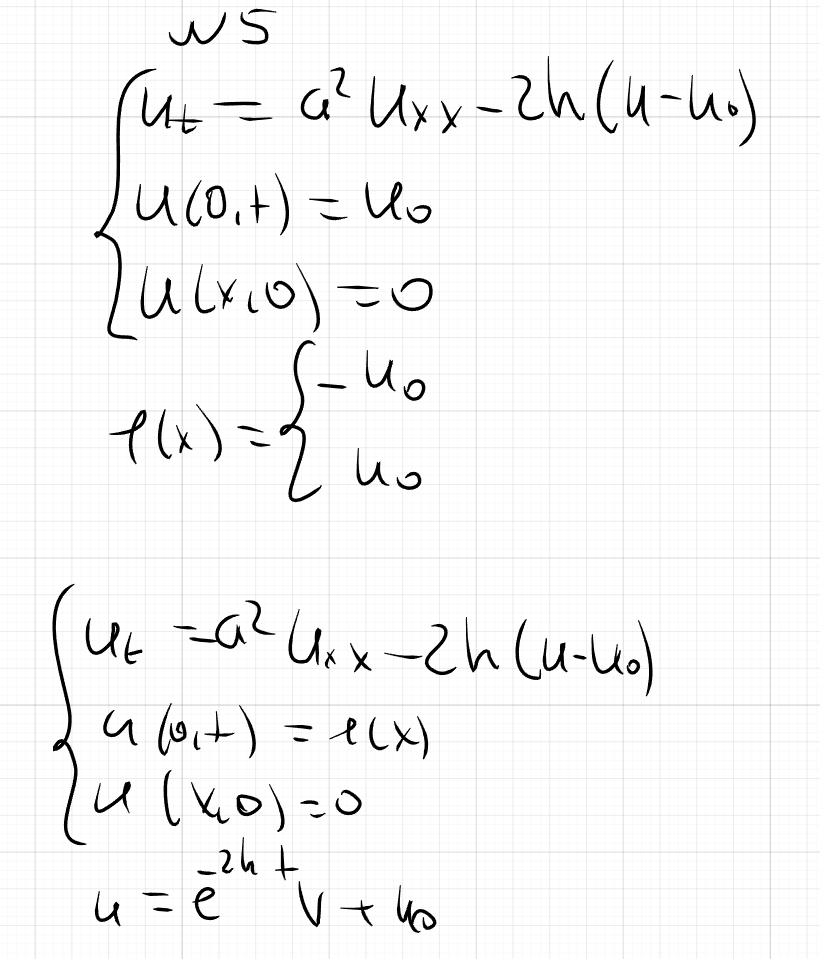 N5
u_t = a² u_xx - 2h(u-u_0)
u(0,t) = u_0
u(x,0) = 0
φ(x) = { -u_0
u_0
u_t = a² u_xx - 2h(u-u_0)
u(0,t) = φ(x)
u(x,0) = 0
u = e^{-2ht} v + u_0